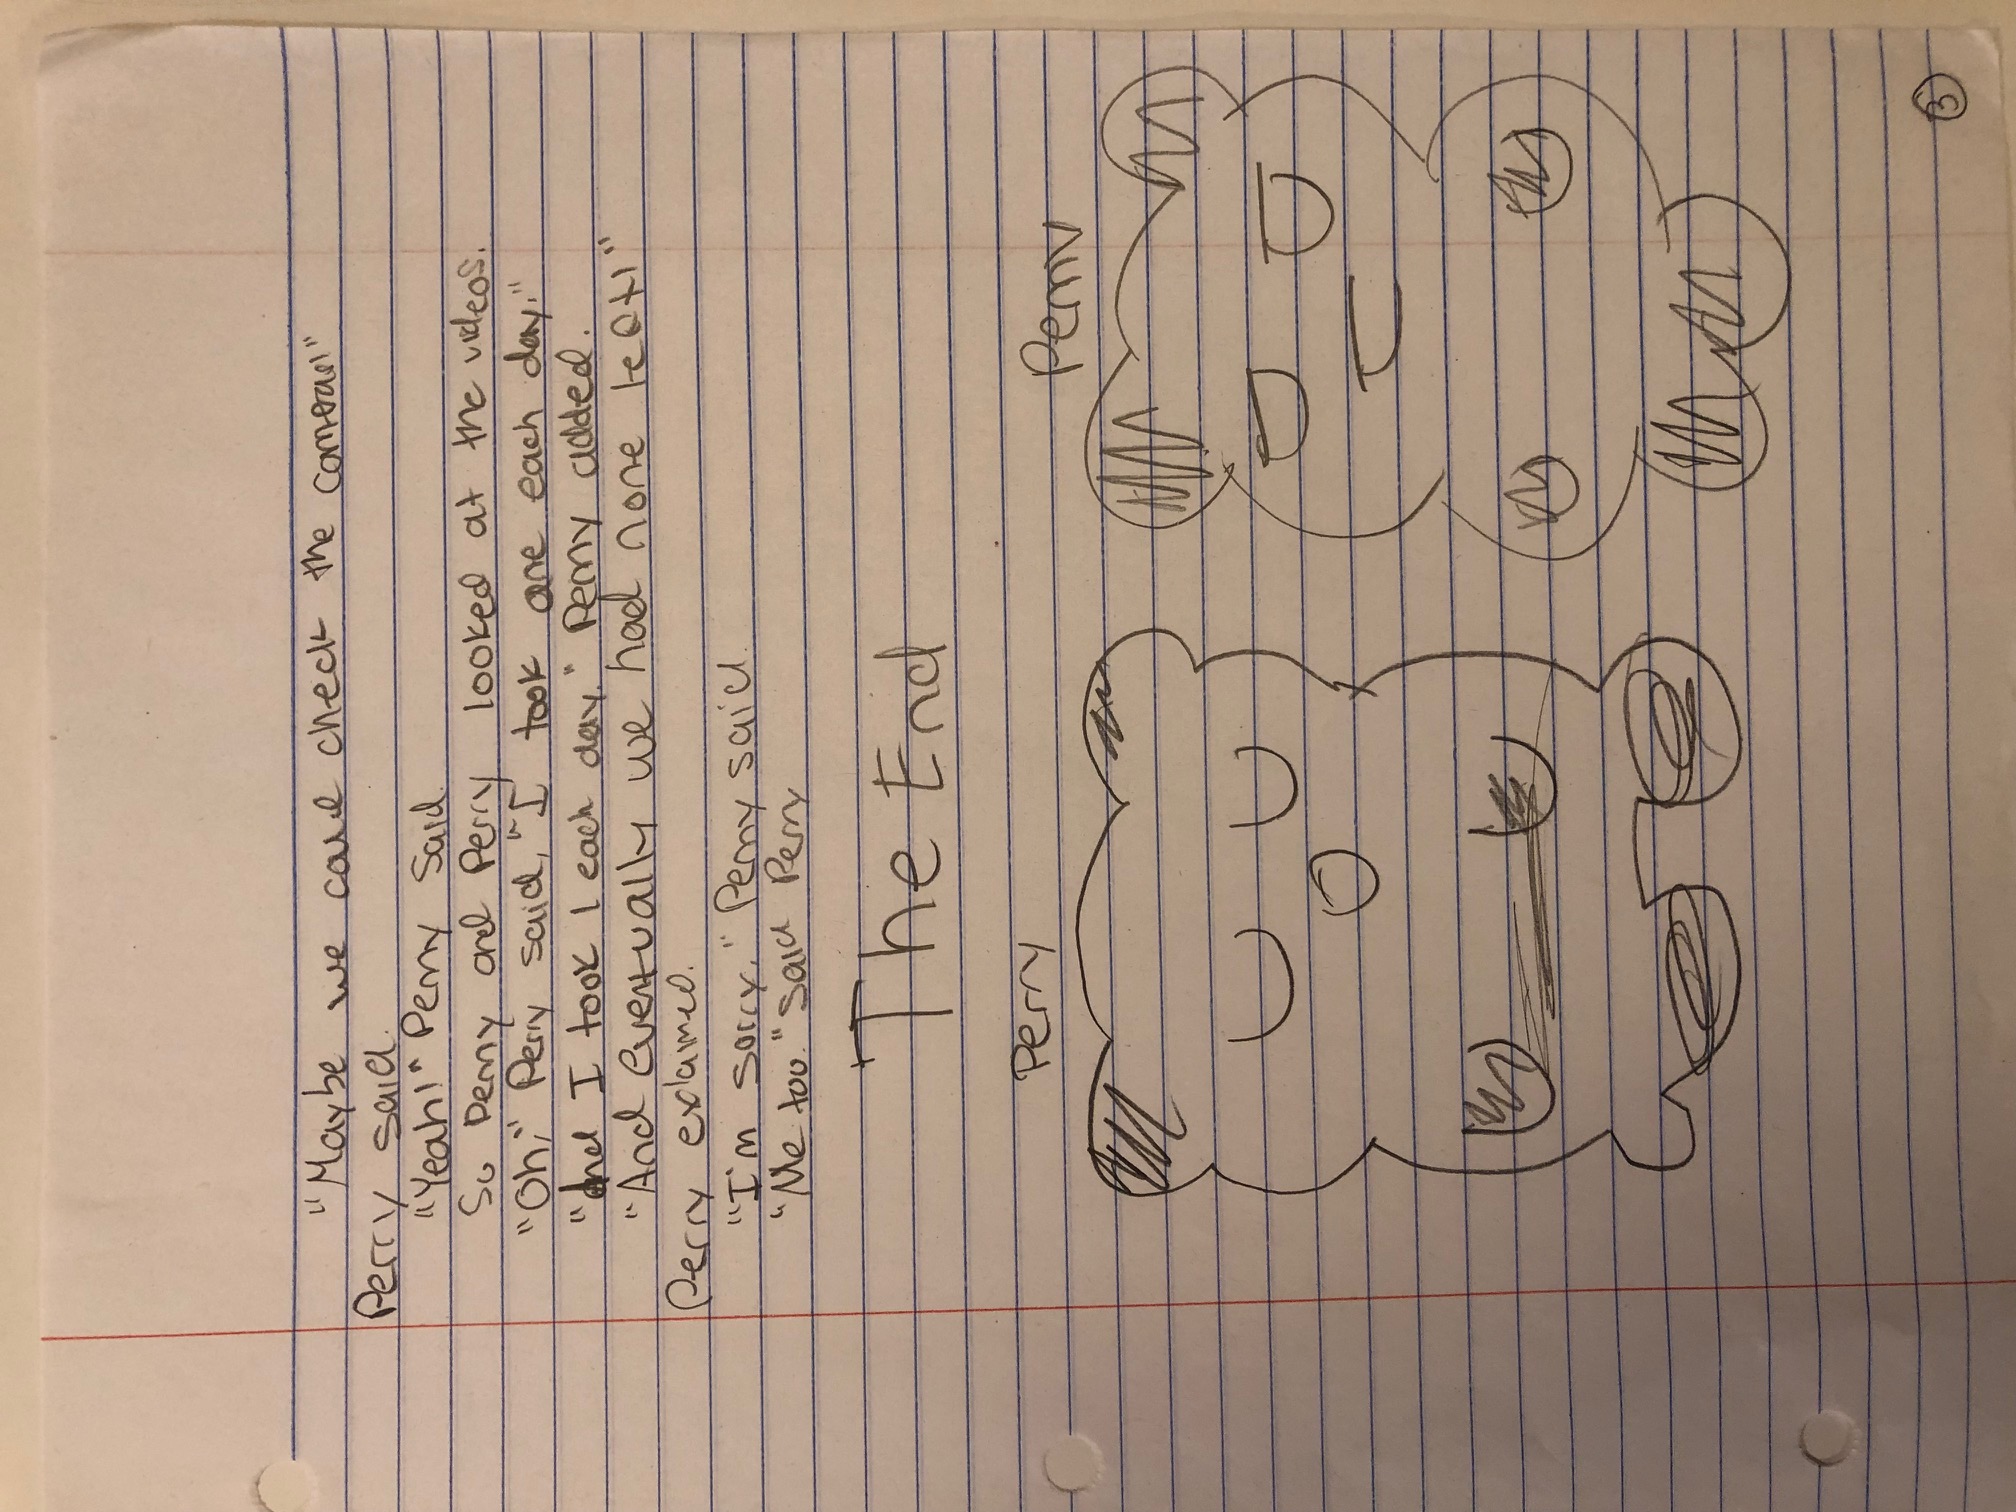 "Maybe we coul check the cameras!"
Perry said.
"Yeah!" Penny Said.
So Penny and Perry looked at the videos.
"Oh," Perry said, "I took one each day."
"And I took 1 each day." Penny added.
"And eventually we had none left!"
Perry exlaimed.
"I'm sorry." Penny said.
"Me too." said Perry
The End
Perry
Penny
3